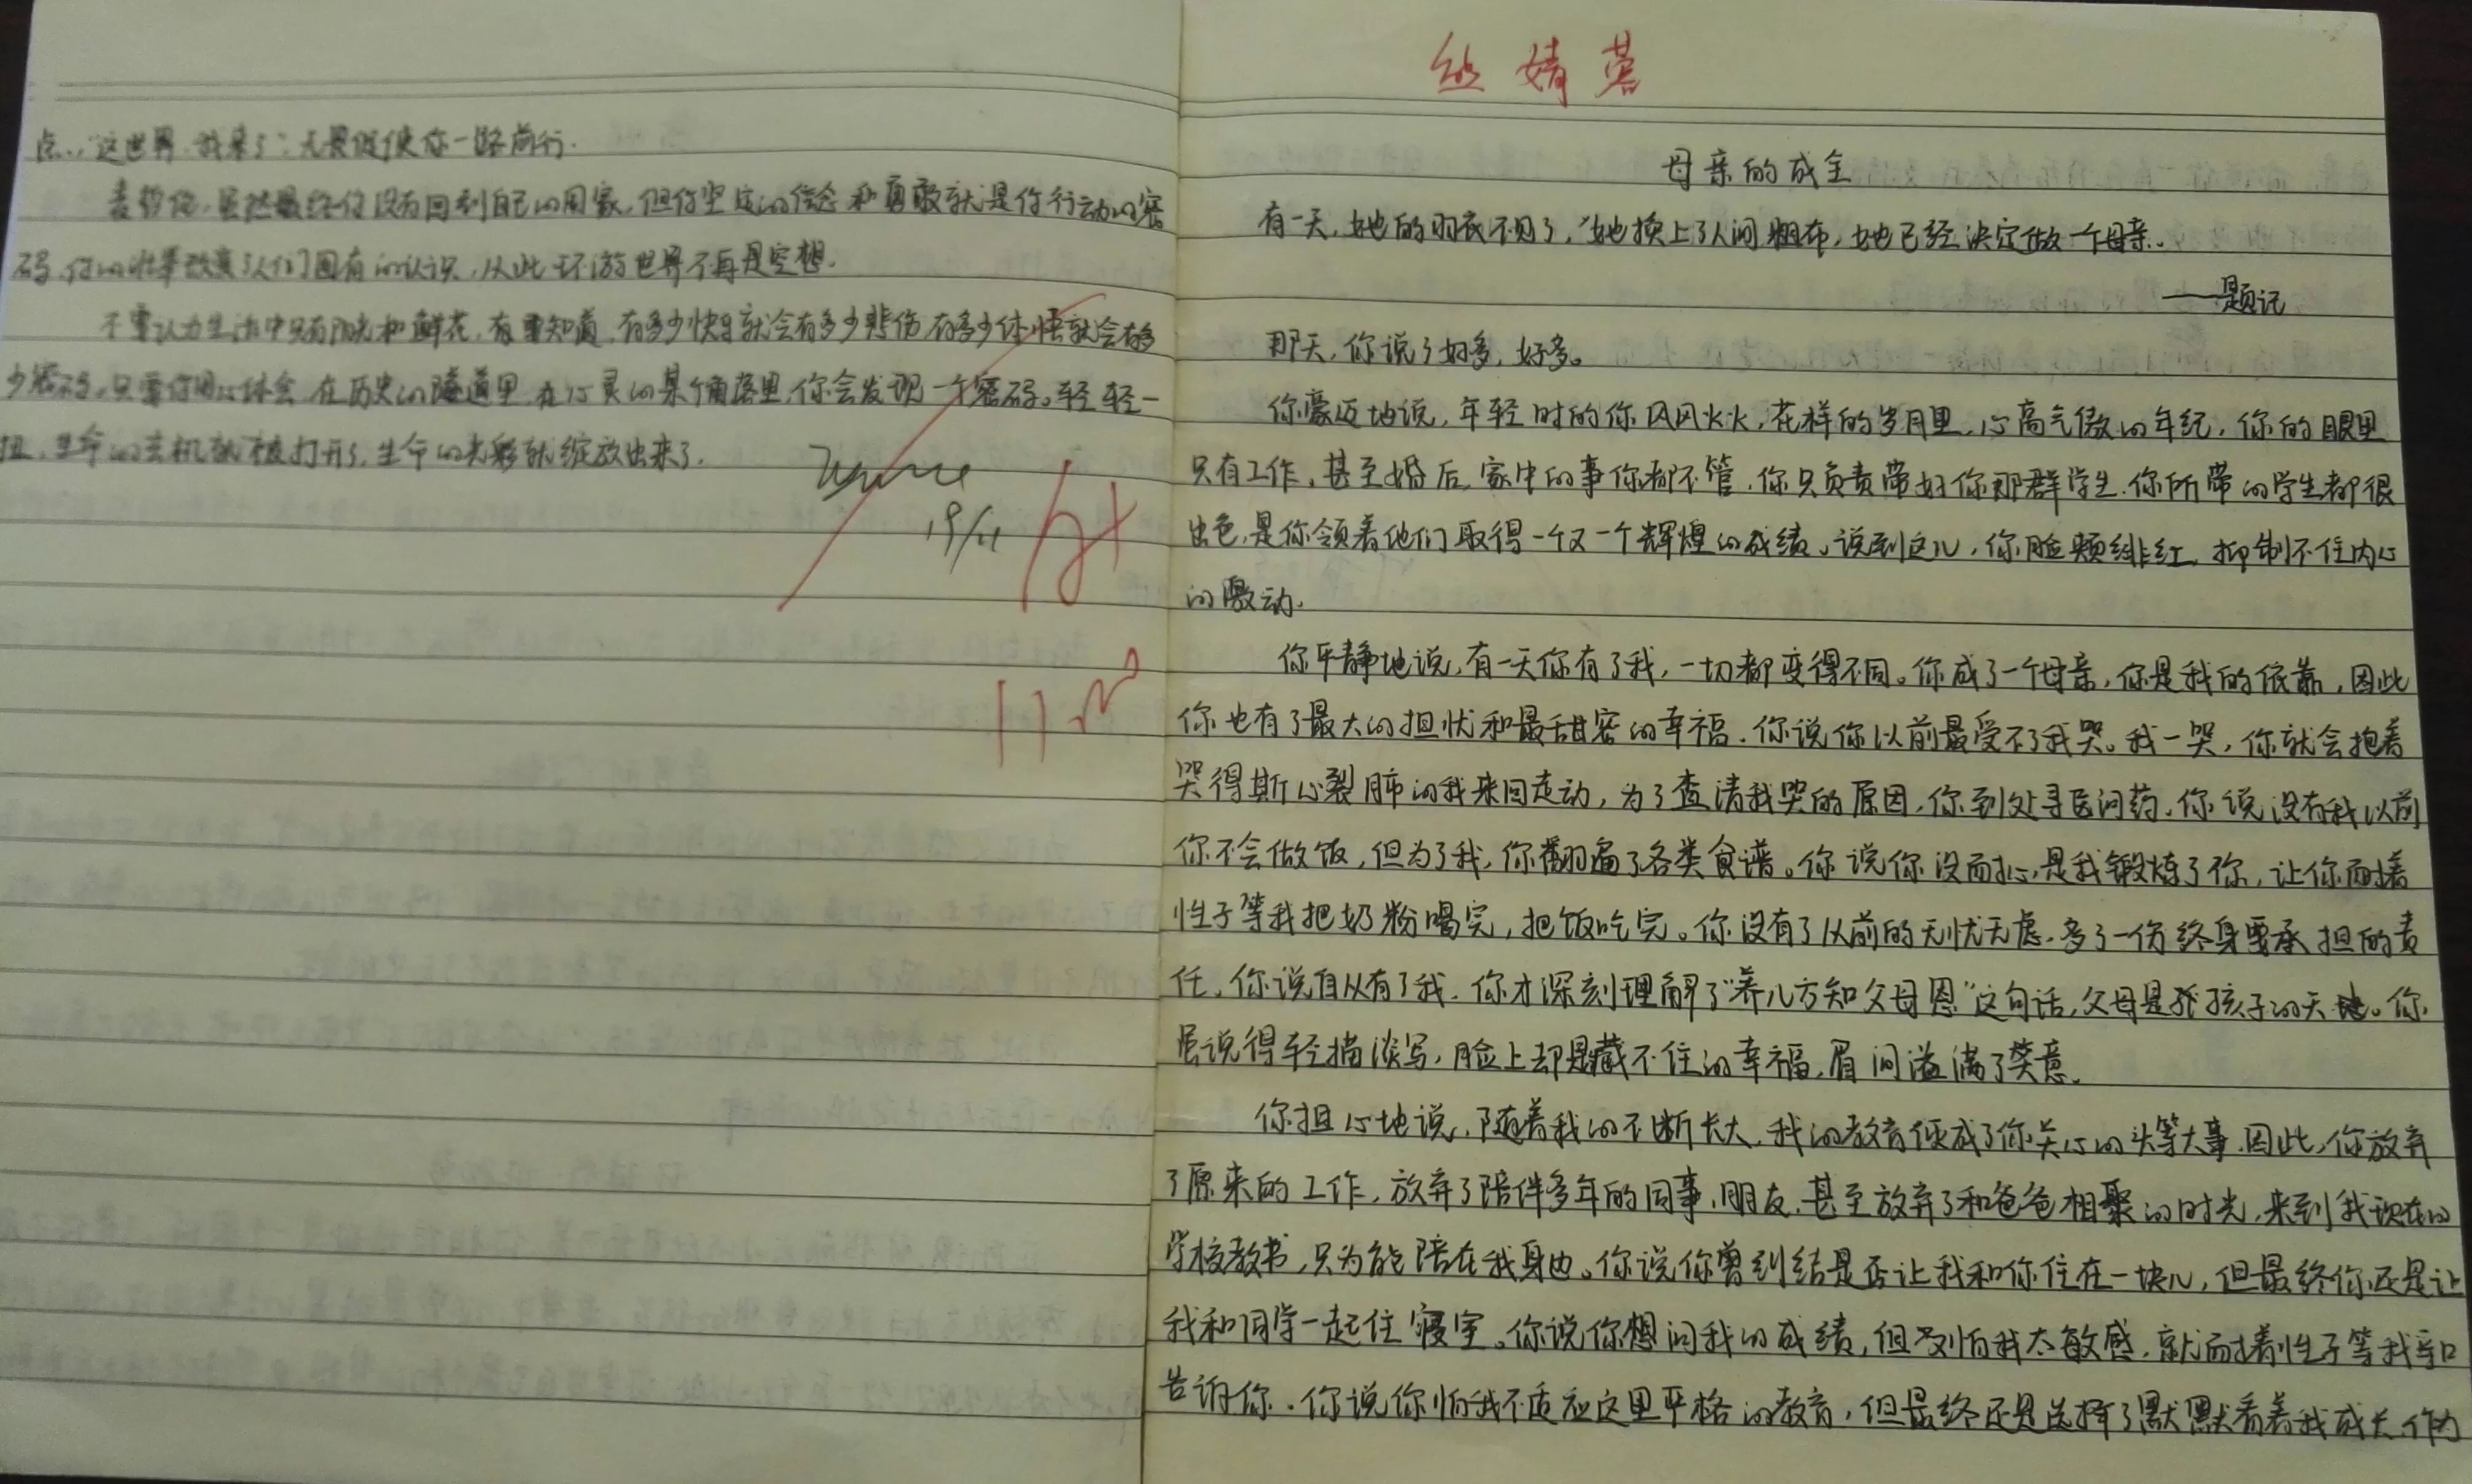 点."这世界.我来了".无畏促使你一路前行.
麦哲伦,虽然最终你没有回到自己的国家,但你坚定的信念和勇敢就是你行动的密
码,你的壮举改变了人们固有的认识,从此环游世界不再是空想.
不要认为生活中只有阳光和鲜花,有多少快乐就会有多少悲伤,有多少体悟就会有多
少密码。只要你用心体会,在历史的隧道里,在心灵的某个角落里,你会发现一个密码。轻轻一
扭,生命的玄机就被打开了,生命的光彩就绽放出来了.
19/11
A+
婧蓉
母亲的成全
有一天,她的羽衣不见了,她换上了人间粗布,她已经决定做一个母亲。
——题记
那天,你说了好多,好多。
你豪迈地说,年轻时的你风风火火,花样的岁月里,心高气傲的年纪,你的眼里
只有工作,甚至婚后,家中的事你都不管,你只负责带好你那群学生.你所带的学生都很
出色,是你领着他们取得一个又一个辉煌的成绩。说到这儿,你脸颊绯红,抑制不住内心
的激动.
你平静地说,有一天你有了我,一切都变得不同。你成了一个母亲,你是我的依靠,因此
你也有了最大的担忧和最甜密的幸福.你说你以前最受不了我哭。我一哭,你就会抱着
哭得斯心裂肺的我来回走动,为了查清我哭的原因,你到处寻医问药.你说没有我以前
你不会做饭,但为了我,你翻遍了各类食谱。你说你没耐心,是我锻炼了你,让你耐着
性子等我把奶粉喝完,把饭吃完。你没有了从前的无忧无虑,多了一份终身要承担的责
任.你说自从有了我,你才深刻理解了"养儿方知父母恩"这句话,父母是孩子的天地。你
虽说得轻描淡写,脸上却是藏不住的幸福,眉间溢满了笑意.
你担心地说,随着我的不断长大,我的教育便成了你关心的头等大事.因此,你放弃
了原来的工作,放弃了陪伴多年的同事,朋友,甚至放弃了和爸爸相聚的时光,来到我现在的
学校教书,只为能陪在我身边。你说你曾纠结是否让我和你住在一块儿,但最终你还是让
我和同学一起住寝室。你说你想问我的成绩,但又怕我太敏感,就耐着性子等我亲口
告诉你.你说你怕我不适应这里严格的教育,但最终还是选择了默默看着我成长.作为